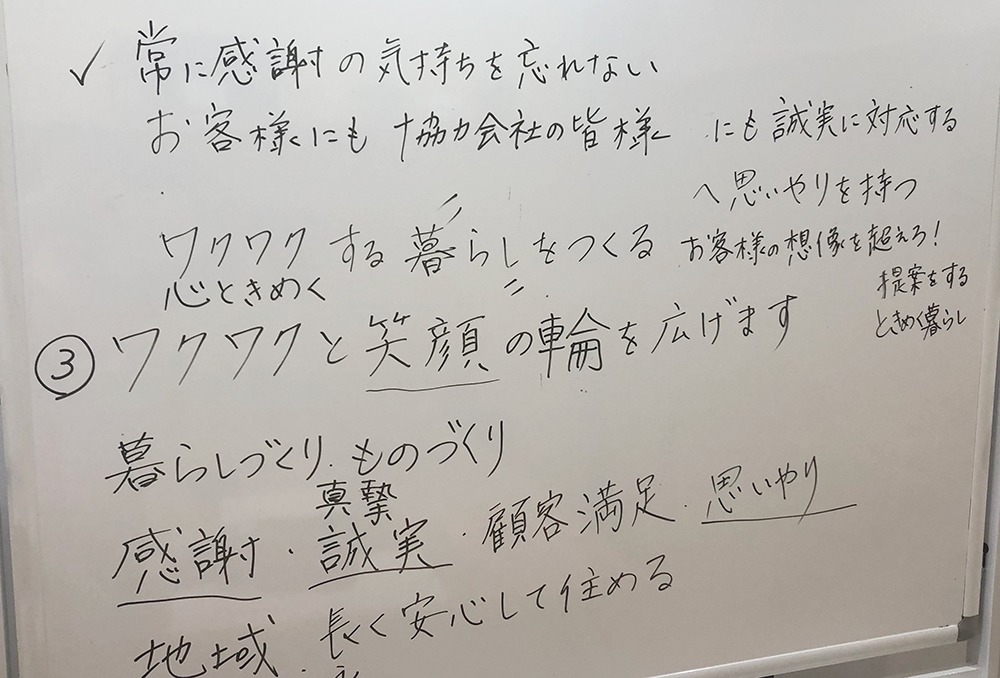 ✓ 常に感謝の気持ちを忘れない
お客様にも 協力会社の皆様 にも誠実に対応する
へ思いやりを持つ
ワクワクする暮らしをつくる
心ときめく
お客様の想像を超えろ!
提案をする
ときめく暮らし
③ ワクワクと笑顔の輪を広げます
暮らしづくり.ものづくり
真摯
感謝・誠実・顧客満足.思いやり
地域.長く安心して住める